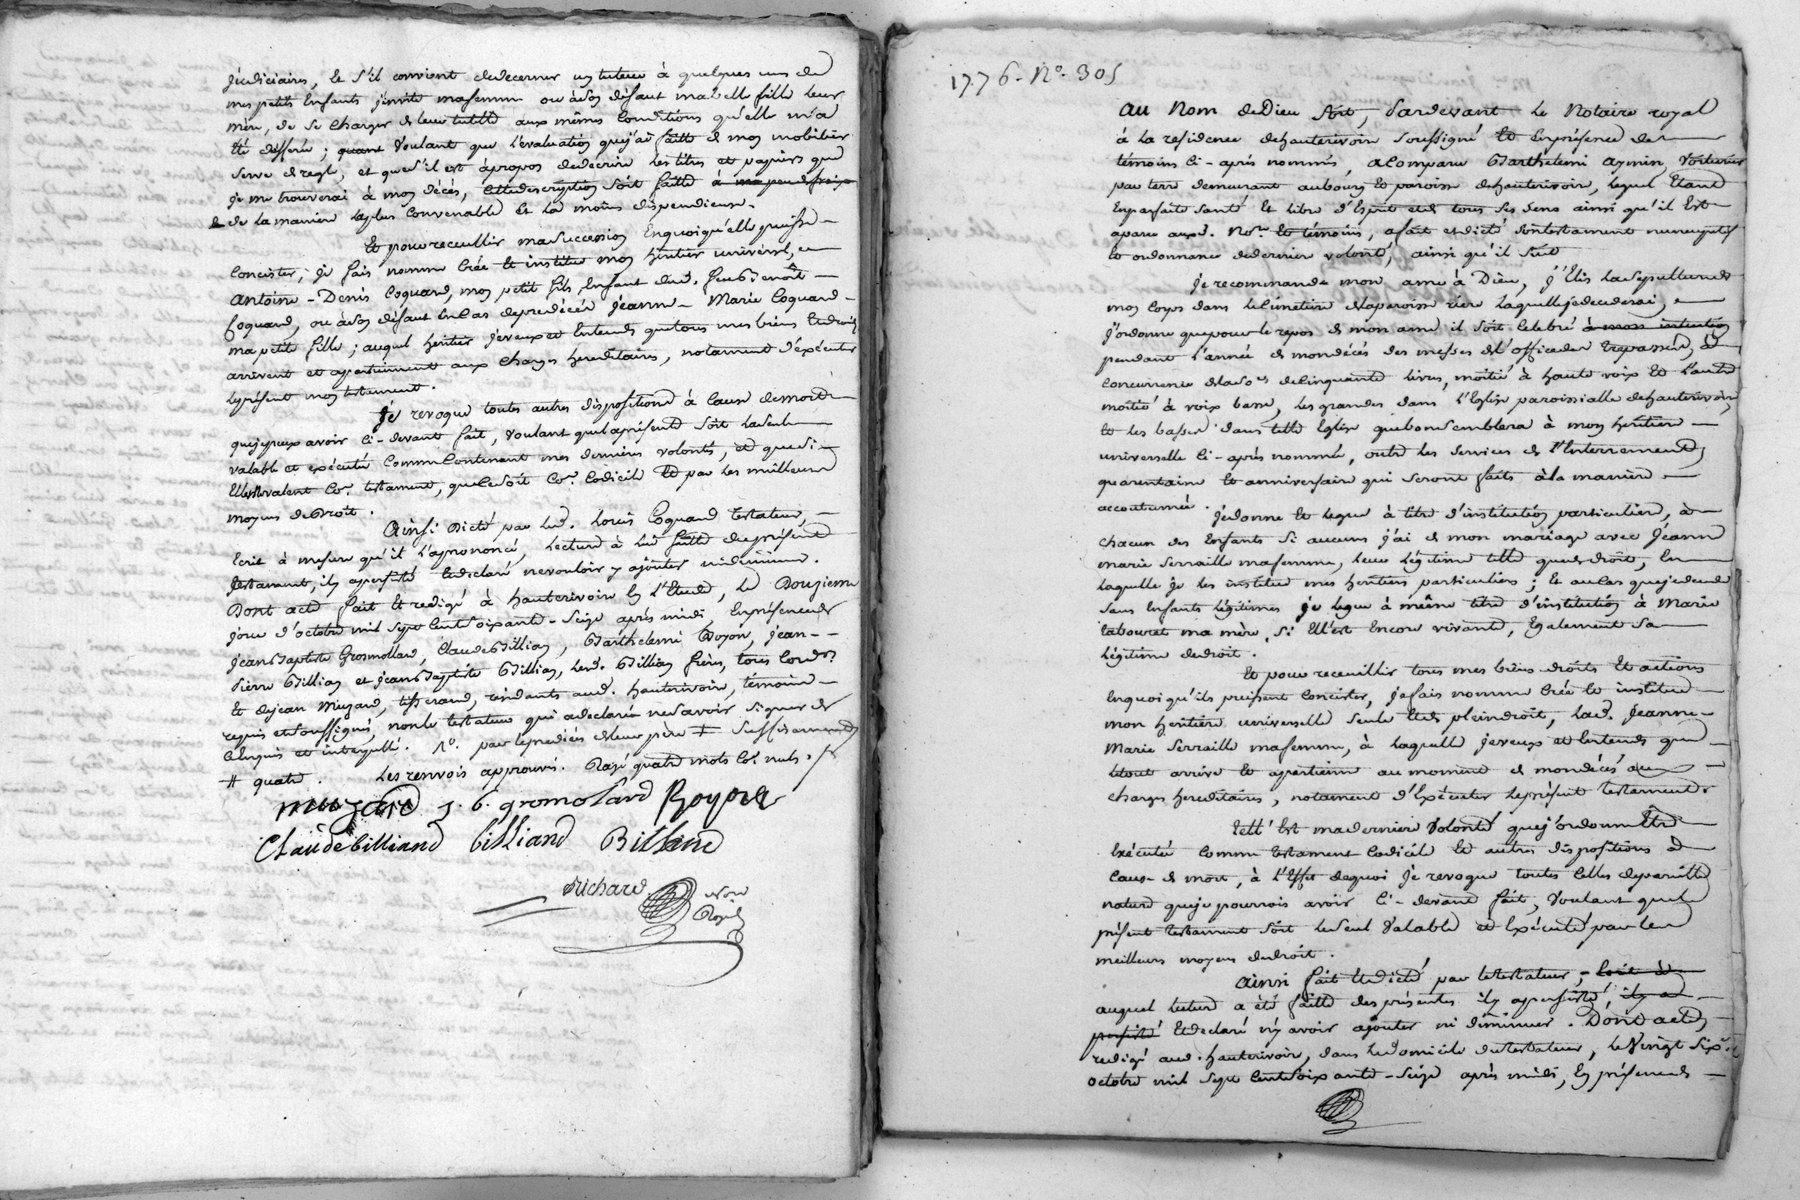 judiciaires, Et s'il convient de decerner un tuteur à quelques uns de
mes petits Enfants j'invite ma femme ou à son défaut ma belle fille leur
mère, de se charger de leur tutelle aux mêmes Conditions qu'elle m'a
été déferée ; quant voulant que l'évaluation que j'ai faitte de mon mobilier
serve de regle, et qu'où il est àpropos de decrire les titres et papiers que
je me trouverai à mon décès, cette description soit faitte à ma peu de fraix
& de la manière la plus convenable Et la moins dispendieuse.
Et pour receuillir ma succession En quoi qu'elle puisse
Concister, je fais nomme Crée Et institue mon héritier universel,
antoine-Denis Coquard, mon petit fils, Enfant dud. feu Benoît
Coquard, ou à son défaut En Cas de predécès jeanne-Marie Coquard
ma petite fille ; auquel héritier je veux et Entends que tous mes biens Et droits
arrivent et apartiennent aux charges hereditaires, notament d'exécuter
le présent mon testament.
Je revoque toutes autres dispositions à Cause de mort
que je peux avoir Ci-devant fait, voulant que la présente soit la seule
valable et exécutée Comme Contenant mes dernieres volontés, et que si
Elle ne valent Co.e testament, que Ce soit Co.e Codicile Et par les meilleurs
moyens de Droit.
Ainsi Dicté par led. Louis Coquard testateur,
Ecrit à mesure qu'il l'a prononcé, lecture à lui faitte du présent
testament, il y a persisté Et declaré ne vouloir y ajouter ni diminuer.
Dont acte fait Et redigé à hauterivoire En l'Etude, le Douzieme
jour d'octobre mil sept Cent soixante-seize après midi, En présence de
jean Baptiste Gromollard, Claude Billian, Barthelemi Royon, jean-
Pierre Billian et jean Baptiste Billian, lesd. Billian frères, tous Cord.rs
Et de jean Muzard, tisserand, residants aud. hauterivoire, témoins
requis et soussignés, non le testateur qui a declaré ne savoir signer de
Ce requis et interpellé. N.a par le prédécès de leur père # suffisamment
# quatre. Les renvois approuvés. Rayé quatre mots Co.e nuls.
muzard j. b. gromolard Royon
Claude billiand billiand Billiand
Richard
No.re Royal
1776. N.o 305
Au Nom de Dieu soit, Pardevant le Notaire royal
à la residence de hauterivoire soussigné Et En présence de
témoins Ci-après nommés, a Comparu Barthelemi aymin, voiturier
par terre demeurant au bourg Et paroisse de hauterivoire, lequel Etant
En parfaite santé Et libre d'Esprit et de tous ses sens ainsi qu'il Est
aparu aud. No.re Et témoins, a fait et dicté son testament nuncupatif
Et ordonnance de derniere volonté, ainsi qu'il suit
Je recommande mon ame à Dieu, j'Elis la sepulture de
mon Corps dans le Cimetiere de la paroisse riere laquelle je decederai,
j'ordonne que pour le repos de mon ame il soit Celebré à mon intention
pendant l'année de mon décès des messes de l'office des trepassés, à
Concurrence de la so.e de Cinquante livres, moitié à haute voix Et l'autre
moitié à voix basse, les grandes dans l'Eglise paroissialle de hauterivoire,
Et les basses dans telle Eglise que bon semblera à mon héritiere
universelle Ci-après nommée, outre les services de l'Enterrement,
quarantaine Et anniversaire qui seront faits à la maniere
accoutumée.
Je donne Et legue à titre d'institution particuliere, à
chacun des Enfants si aucuns j'ai de mon mariage avec Jeanne
marie Serraille ma femme, leur légitime telle que de droit, En
laquelle je les institue mes heritiers particuliers ; Et au Cas que je decede
sans Enfants légitimes je legue à même titre d'institution à Marie
Labouret ma mère, si Ell'est Encore vivante, Egalement sa
légitime de droit.
Et pour receuillir tous mes biens droits Et actions
En quoi qu'ils puissent Concister, je fais nomme Crée Et institue
mon heritiere universelle seule Et de plein droit, lad. Jeanne-
Marie Serraille ma femme, à laquelle je veux et Entends que
le tout arrive Et apartienne au moment de mon décès aux
charges hereditaires, notament d'Exécuter le présent testament.
Tell' Est ma derniere volonté que j'ordonne Être
Exécutée Comme testament Codicile Et autres dispositions à
Cause de mort, à l'Effet dequoi je revoque toutes Celles de pareille
nature que je pourrois avoir Ci-devant fait, voulant que le
présent testament soit le seul valable et Exécuté par les
meilleurs moyens de droit.
Ainsi fait Et dicté par le testateur, Ecrit à
auquel lecture a été faitte des présentes il y a persisté, il y a
persisté Et declaré n'y avoir ajouter ni diminuer. Dont acte,
redigé aud. hauterivoire, dans le domicile du testateur, le vingt six.e
octobre mil sept Cent soixante-seize après midi, En présence de